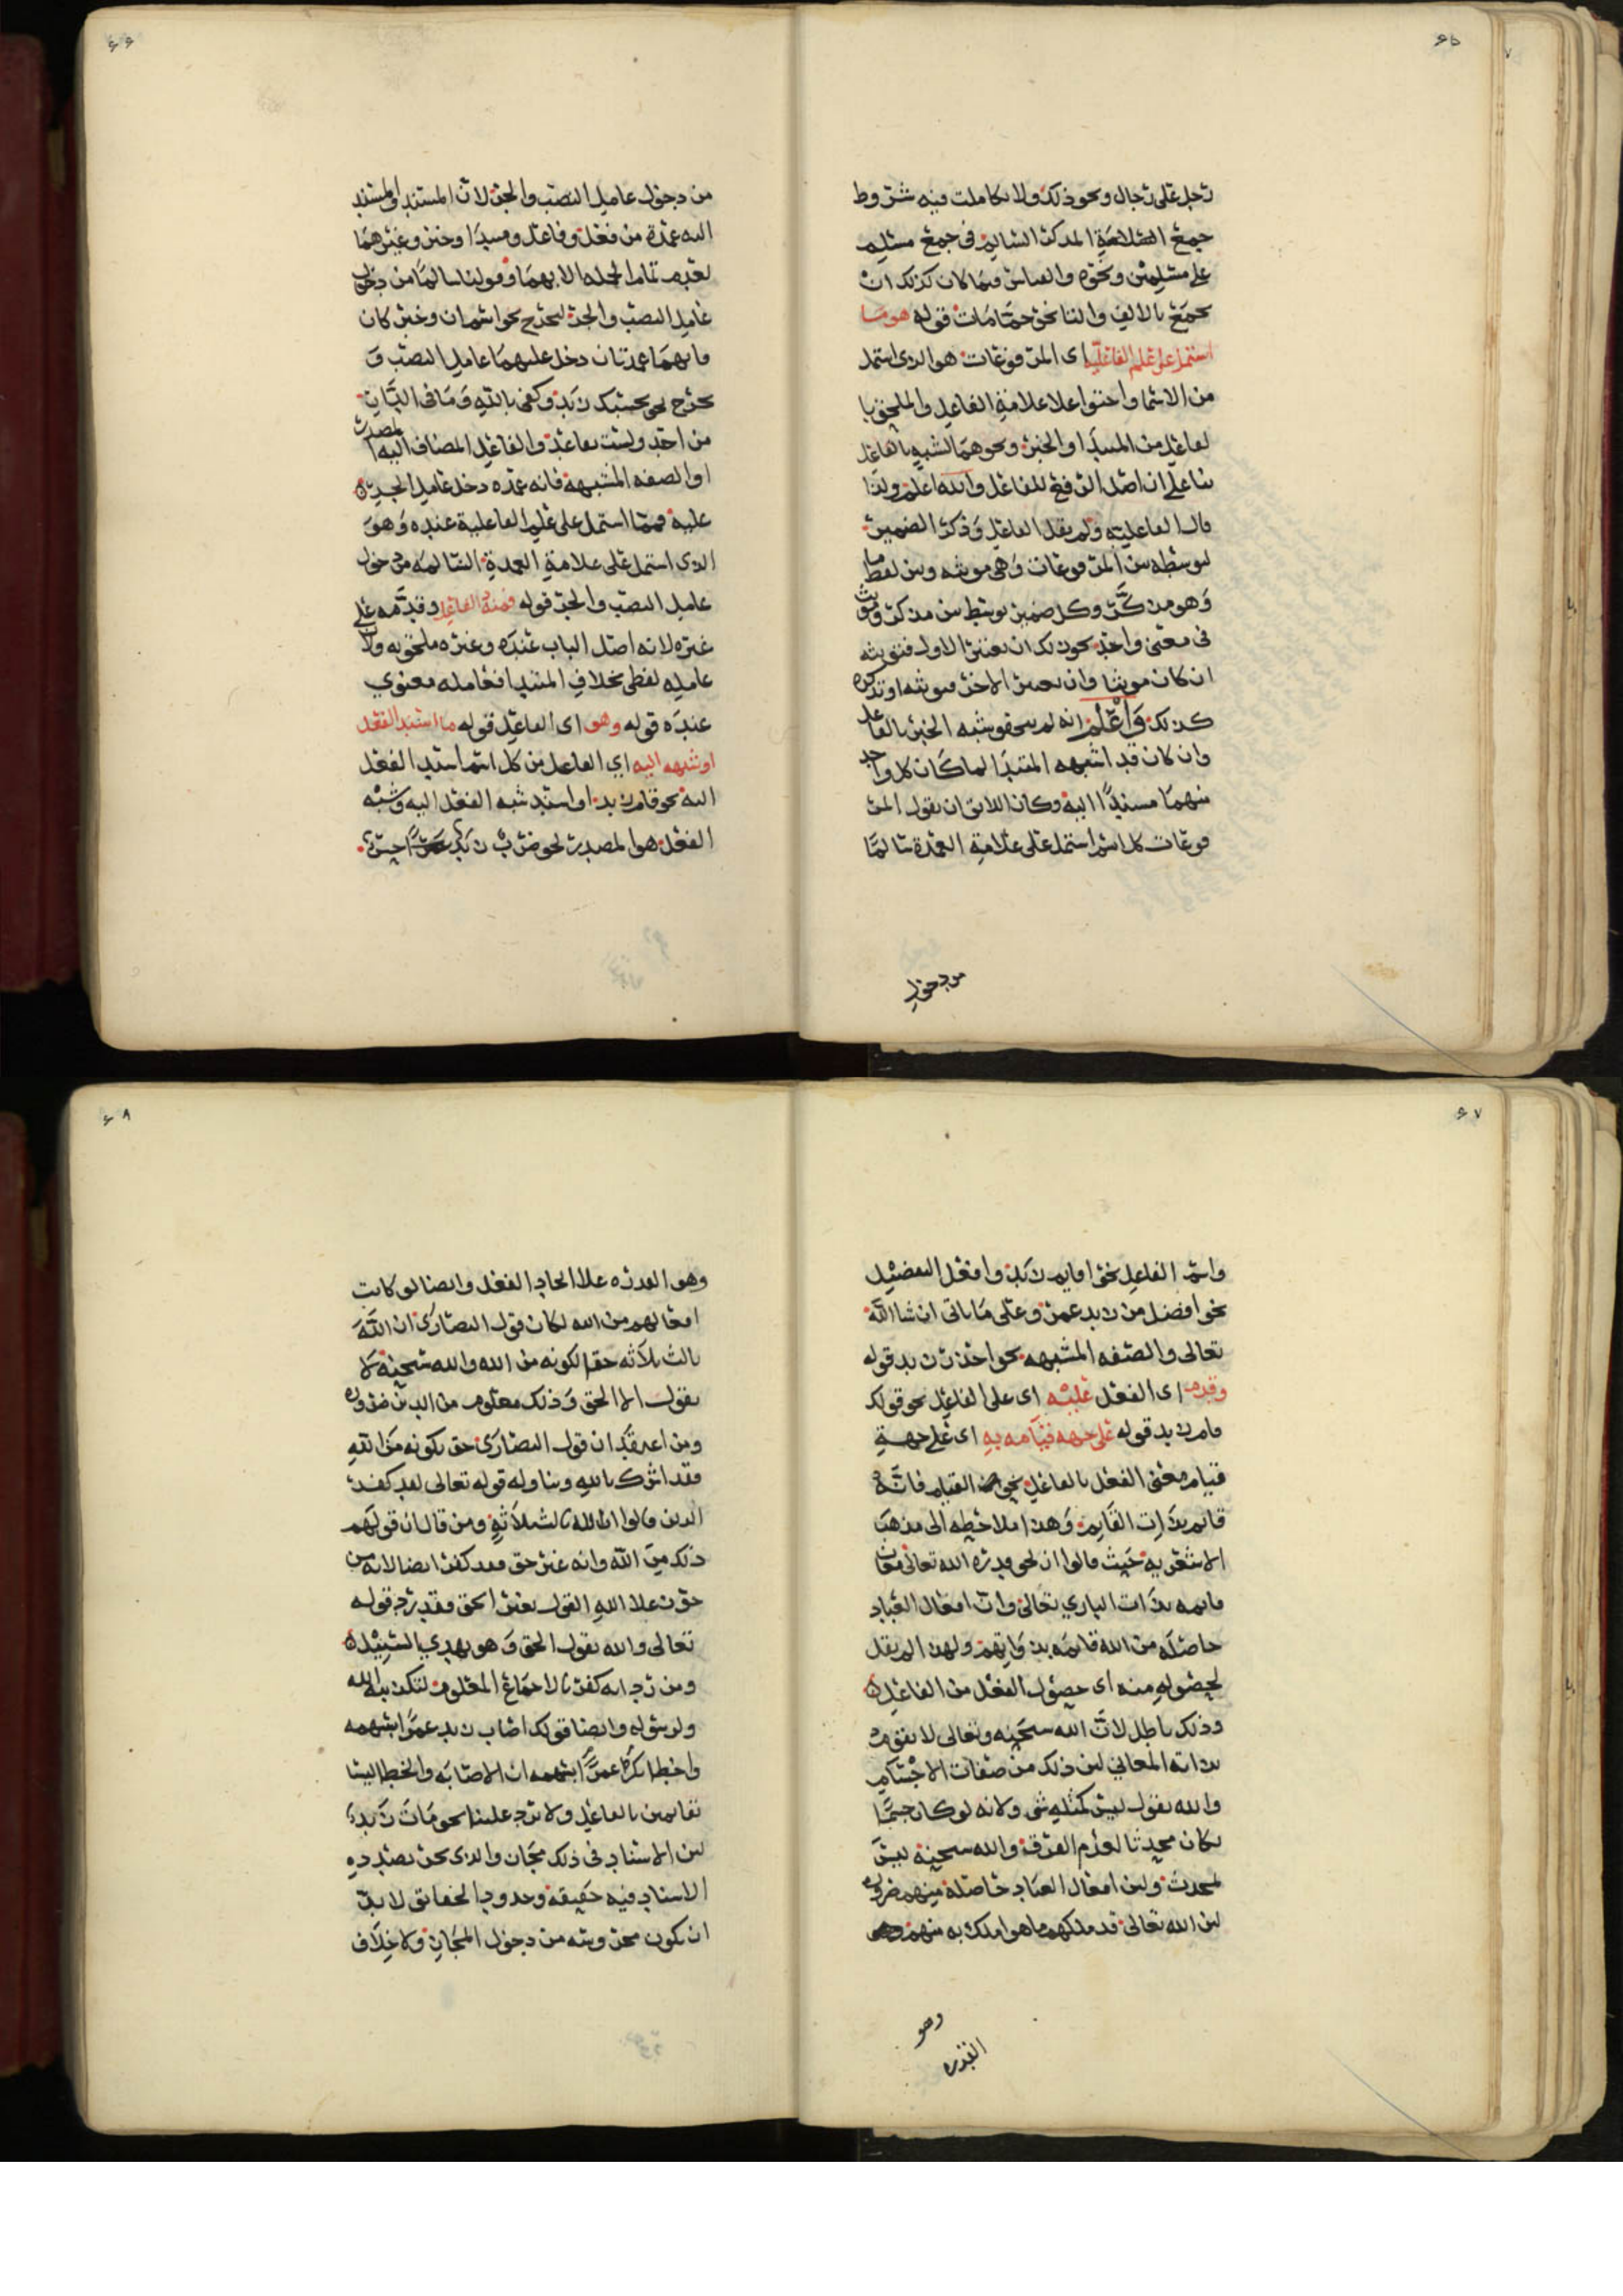 ٦٥
رجل على رجال ونحو ذلك ولا تكاملت فيه شروط
جمع السلامة المذكر السالم في جمع مسلم
على مسلمين ونحوه والقياس فيما كان كذلك ان
يجمع بالالف والتا نحو حمامات قوله هو ما
اشتمل على علم الفاعلية اي المرفوعات هو الذي اشتمل
من الاسما واحتوا علا علامة الفاعل والملحق با
لفاعل من المبتدا والخبر ونحوهما لشبهه بالفاعل
بنا على ان اصل الرفع للفاعل والله اعلم ولذا
قال الفاعلية ولم يقل الفاعل وذكر الضمير
لتوسطه بين المرفوعات وهي مونثه وبين لفظ ما
وهو مذكر وكل ضمير توسط بين مذكر ومونث
في معنى واحد يجوز لك ان تعتبر الاول فتونثه
ان كان مونثا وان تعتبر الاخر فتونثه او تذكره
كذلك واعلم انه لم يتحقق شبه الخبر بالفاعل
وان كان قد اشبهه المبتدا لما كان كل واحد
منهما مسندا اليه وكان اللائق ان يقول المر
فوعات كل اسم اشتمل على علامة العمدة سالما
من دخول
٦٦
من دخول عامل النصب والجر لان المسند والمسند
اليه عمدة من فعل وفاعل ومبتدا وخبر وغيرهما
لعدم تمام الجمله الا بهما وقولنا سالما من دخول
عامل النصب والجر ليخرج نحو اسم ان وخبر كان
فانهما عمدتان دخل عليهما عامل النصب و
يخرج نحو بحسبك زيد وكفى بالله وما في الدار
من احد ولست بقاعد والفاعل المضاف اليه المصدر
او الصفه المشبهة فانه عمده دخل عامل الجر
عليه فمما اشتمل على علم الفاعلية عنده وهو
الذي اشتمل على علامة العمدة السالمه من دخول
عامل النصب والجر قوله فمنه الفاعل وقدمه على
غيره لانه اصل الباب عنده وغيره ملحق به ولان
عامله لفظي بخلاف المبتدا فعامله معنوي
عنده قوله وهو اي الفاعل قوله ما اسند الفعل
او شبهه اليه اي الفاعل من كل اسم اسند الفعل
اليه نحو قام زيد او اسند شبه الفعل اليه وشبه
الفعل هو المصدر نحو ضرب زيد عمرا حسن
٦٧
واسم الفاعل نحو اقايم زيد وافعل التفضيل
نحو افضل من زيد عمرو وعلى ما ياتي ان شا الله
تعالى والصفه المشبهه نحو احسن زيد قوله
وقدم اي الفعل عليه اي على الفاعل نحو قولك
قام زيد قوله على جهه قيامه به اي على جهة
قيام معنى الفعل بالفاعل نحو القيام فانه
قائم بذات القايم وهذا ملاحظه الى مذهب
الاشعريه حيث قالوا ان نحو قدره الله تعالى معان
قايمه بذات الباري تعالى وان افعال العباد
حاصله من الله قائمه بذواتهم ولهذا لم يقل
لحصوله منه اي حصول الفعل من الفاعل
وذلك باطل لان الله سبحنه وتعالى لا يقوم
بذاته المعاني لان ذلك من صفات الاجسام
والله يقول ليس كمثله شي ولانه لو كان جسما
لكان محدثا لعدم الفرق والله سبحنه ليس
بمحدث ولان افعال العباد حاصلة منهم ضروره
لان الله تعالى قد ملكهم ما هو املك به منهم
وهو القدره
٦٨
وهو القدره علا ايجاد الفعل وايضا لو كانت
افعالهم من الله لكان قول النصارى ان الله
ثالث ثلاثه حقا لكونه من الله والله سبحنه لا
يقول الا الحق وذلك معلوم من الدين ضروره
ومن اعتقد ان قول النصارى حق بكونه من الله
فقد اشرك بالله وتناوله قوله تعالى لقد كفر
الذين قالوا ان الله ثالث ثلاثة ومن قال ان قولهم
ذلك من الله وانه غير حق فقد كفر ايضا لانه من
جوز علا الله القول بغير الحق فقد رد قوله
تعالى والله يقول الحق وهو يهدي السبيل
ومن رد ايه كفر بالاجماع المعلوم لتكذيبه الله
ولرسوله وايضا قولك اصاب زيد عمرا بسهمه
واخطا بكر عمرا بسهمه ان الاصابه والخطا ليسا
بقايمين بالفاعل ولا يرد علينا نحو مات زيد
لان الاسناد في ذلك مجاز والذي نحن بصدده
الاسناد فيه حقيقه وحدود الحقائق لا بد
ان تكون محروسه من دخول المجاز ولا خلاف